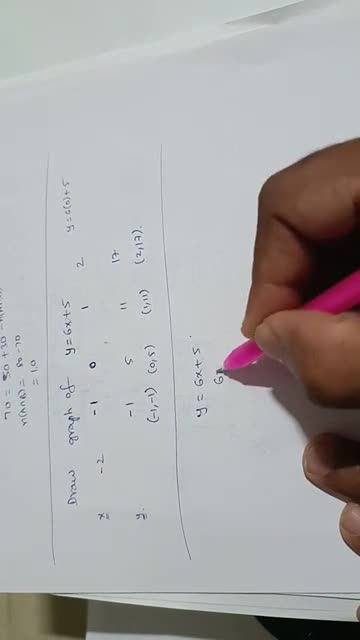 70 = 50 + 30 -
n(A∩B) = 80 - 70
= 10
Draw graph of y = 6x + 5 y = 6(0) + 5
x -2 -1 0 1 2
y -1 5 11 17
(-1,-1) (0,5) (1,11) (2,17).
y = 6x + 5
6